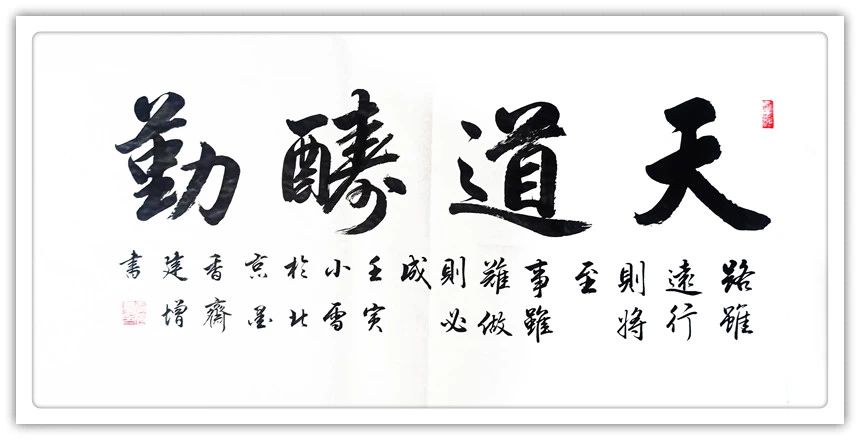 天道醻勤
路雖
遠行
則將
至
事雖
難做
則必
成
壬寅
小雪
於北
京墨
香齋
建增
書